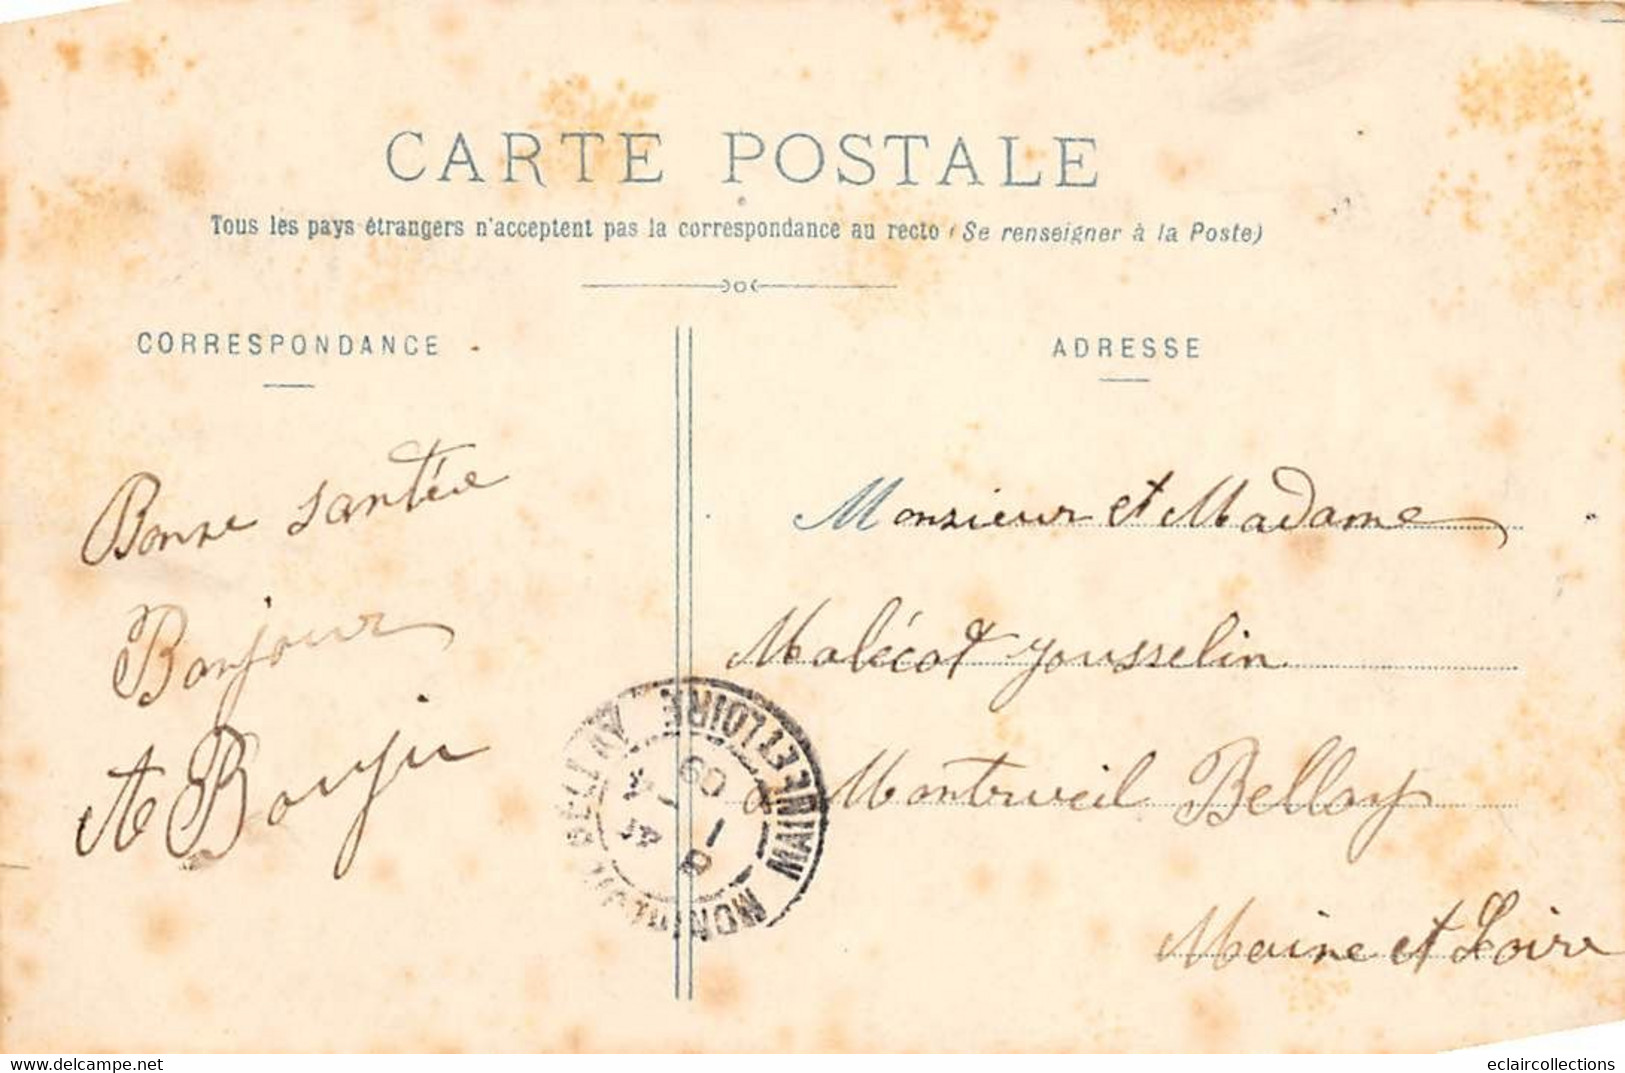 CARTE POSTALE
Tous les pays étrangers n'acceptent pas la correspondance au recto (Se renseigner à la Poste)
CORRESPONDANCE
ADRESSE
Bonne santée
Bonjour
A Bouju
Monsieur et Madame
Malécot Jousselin
à Montreuil Bellay
Maine et Loire
MONTREUIL-BELLAY MAINE-ET-LOIRE
8 - 1
09
delcampe.net
eclaircollections